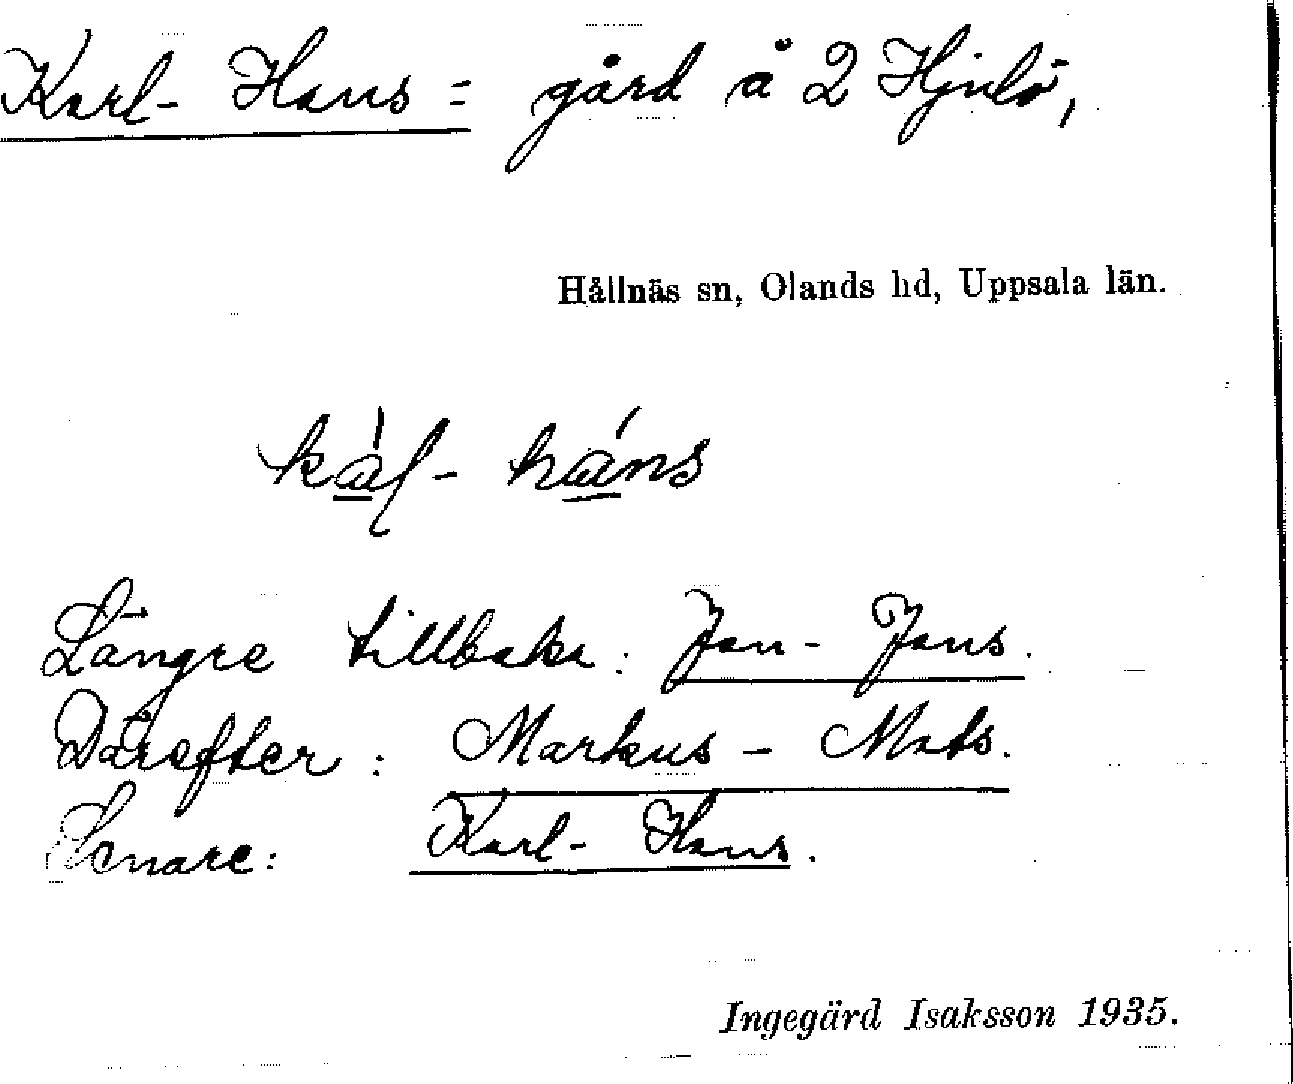 Karl- Hans = gård å 2 Hjulö,
Hållnäs sn, Olands hd, Uppsala län.
kàl- háns
Längre tillbaka: Jan- Jans.
Därefter: Markus - Mats.
Senare: Karl- Hans.
Ingegärd Isaksson 1935.